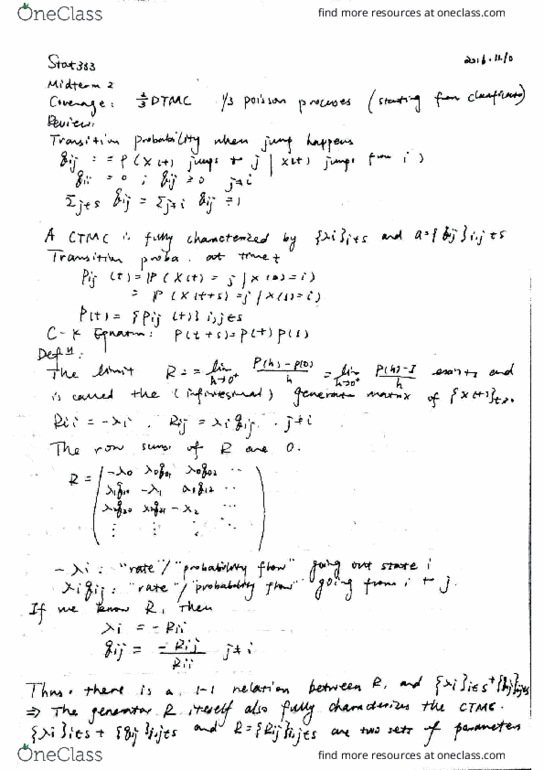 OneClass
find more resources at oneclass.com
Stat333
2016.11.10
Midterm 2
Coverage: 2/3 DTMC 1/3 poisson processes (starting from classification)
Review:
Transition probability when jump happens
qij := P(X(t) jumps to j | X(t) jumps from i)
qii = 0; qij ≥ 0 j≠i
Σj∈S qij = Σj≠i qij = 1
A CTMC is fully characterized by {λi}i∈S and Q={qij}i,j∈S
Transition proba. at time t
Pij(t) = P(X(t) = j | X(0) = i)
= P(X(t+s) = j | X(s) = i)
P(t) = {Pij(t)}i,j∈S
C-K Equation: P(t+s) = P(t)P(s)
Def:
The limit R := lim h→0+ P(h)-P(0)/h = lim h→0+ P(h)-I/h exists and
is called the (infinitesimal) generate matrix of {X(t)}t≥0.
Rii = -λi. Rij = λiqij. j≠i
The row sums of R are 0.
R = ( -λ0 λ0q01 λ0q02 ...
λ1q10 -λ1 λ1q12 ...
λ2q20 λ2q21 -λ2 ...
⋮ ⋮ ⋮ ⋱ )
- λi: "rate"/"probability flow" going out state i
λiqij: "rate"/"probability flow" going from i to j.
If we know R, then
λi = -Rii
qij = -Rij/Rii j≠i
Thus, there is a 1-1 relation between R, and {λi}i∈S + {qij}i,j∈S
⇒ The generator R itself also fully characterizes the CTMC.
{λi}i∈S + {qij}i,j∈S and R={Rij}i,j∈S are two sets of parameters
OneClass
find more resources at oneclass.com